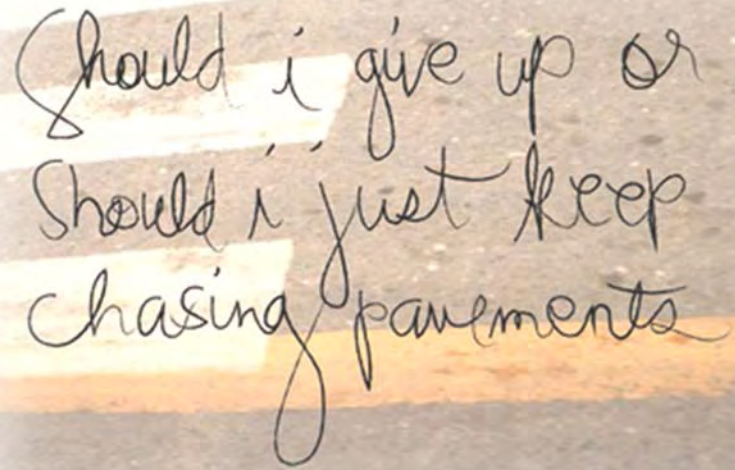 Should i give up or
Should i just keep
chasing pavements